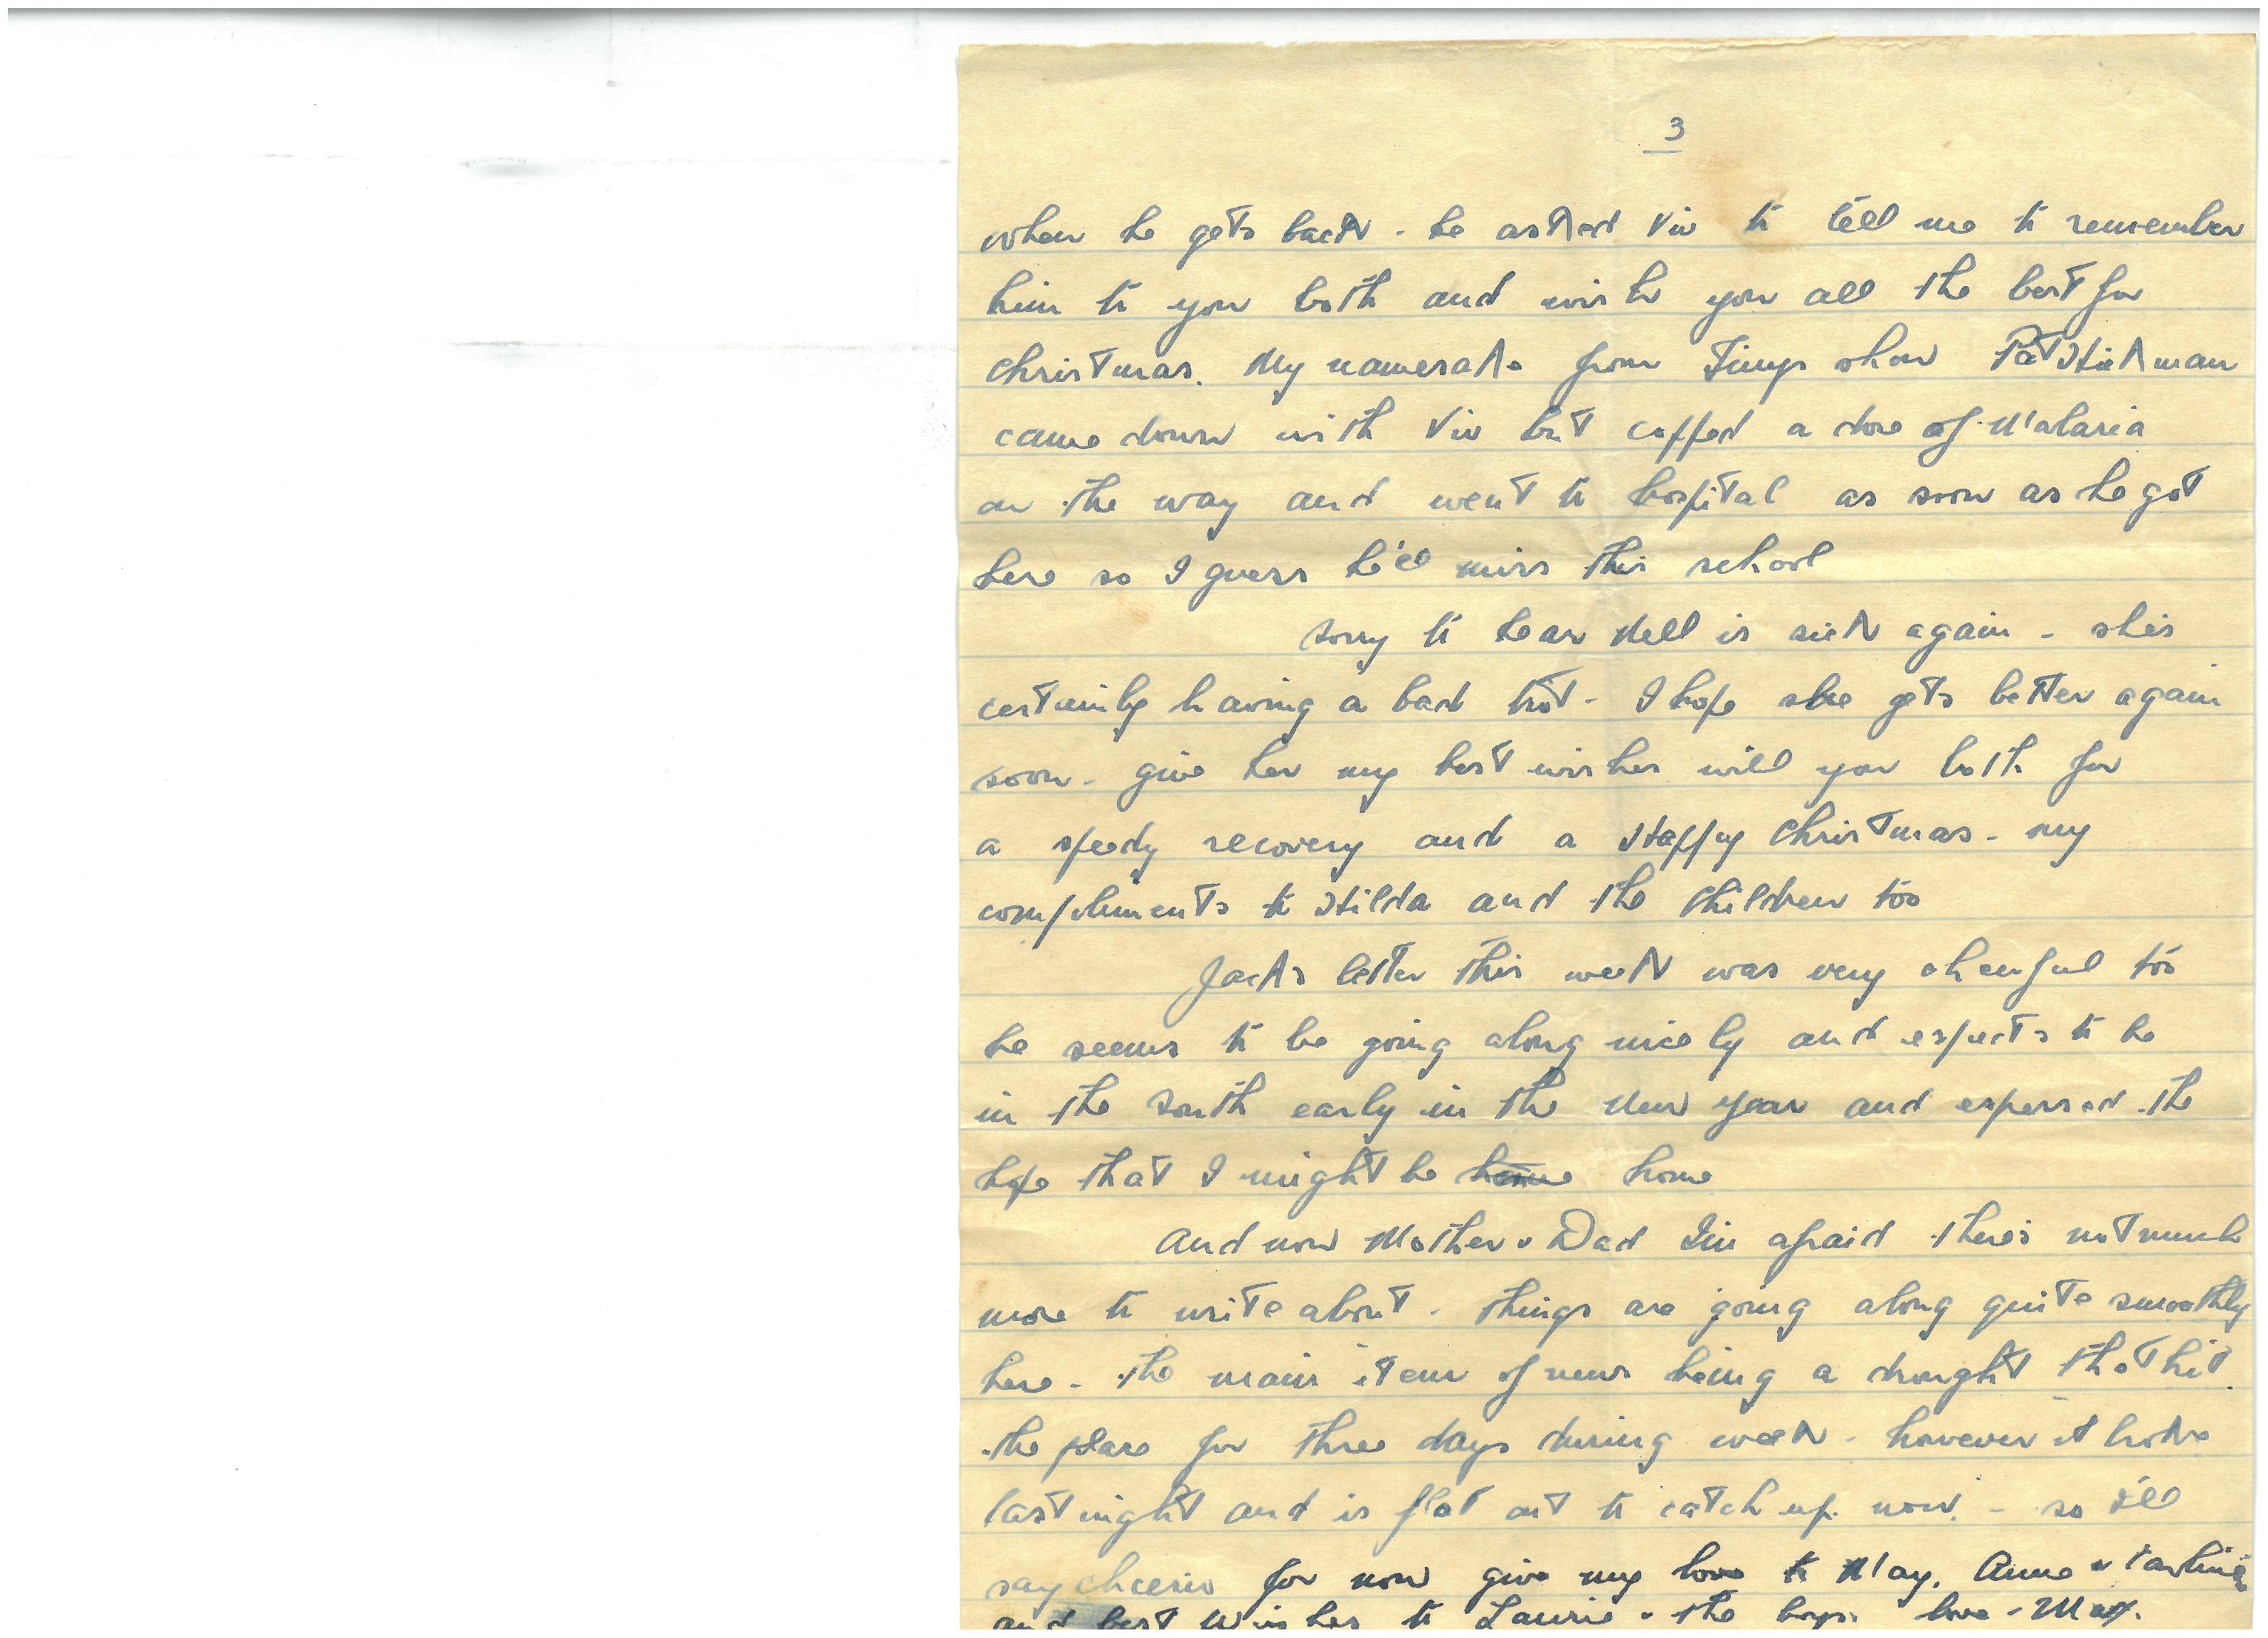 3
when he gets back - he asked Viv to tell me to remember
him to you both and wish you all the best for
Christmas. My namesake from Jimps show Pat Hickman
came down with Viv but copped a dose of Malaria
on the way and went to hospital as soon as he got
here so I guess he'll miss this school
Sorry to hear Nell is sick again - she's
certainly having a bad trot - I hope she gets better again
soon - give her my best wishes will you both for
a speedy recovery and a Happy Christmas - my
compliments to Hilda and the Children too
Jack's letter this week was very cheerful too
he seems to be going along nicely and expects to be
in the South early in the New Year and expressed the
hope that I might be home home
And now Mother & Dad I'm afraid there's not much
more to write about - things are going along quite smoothly
here - the main item of news being a drought that hit
the place for three days during week - however it broke
last night and is flat out to catch up now. - so I'll
say cheerio for now give my love to May, Anne &
and best wishes to Laurie & the boys. love - Max.